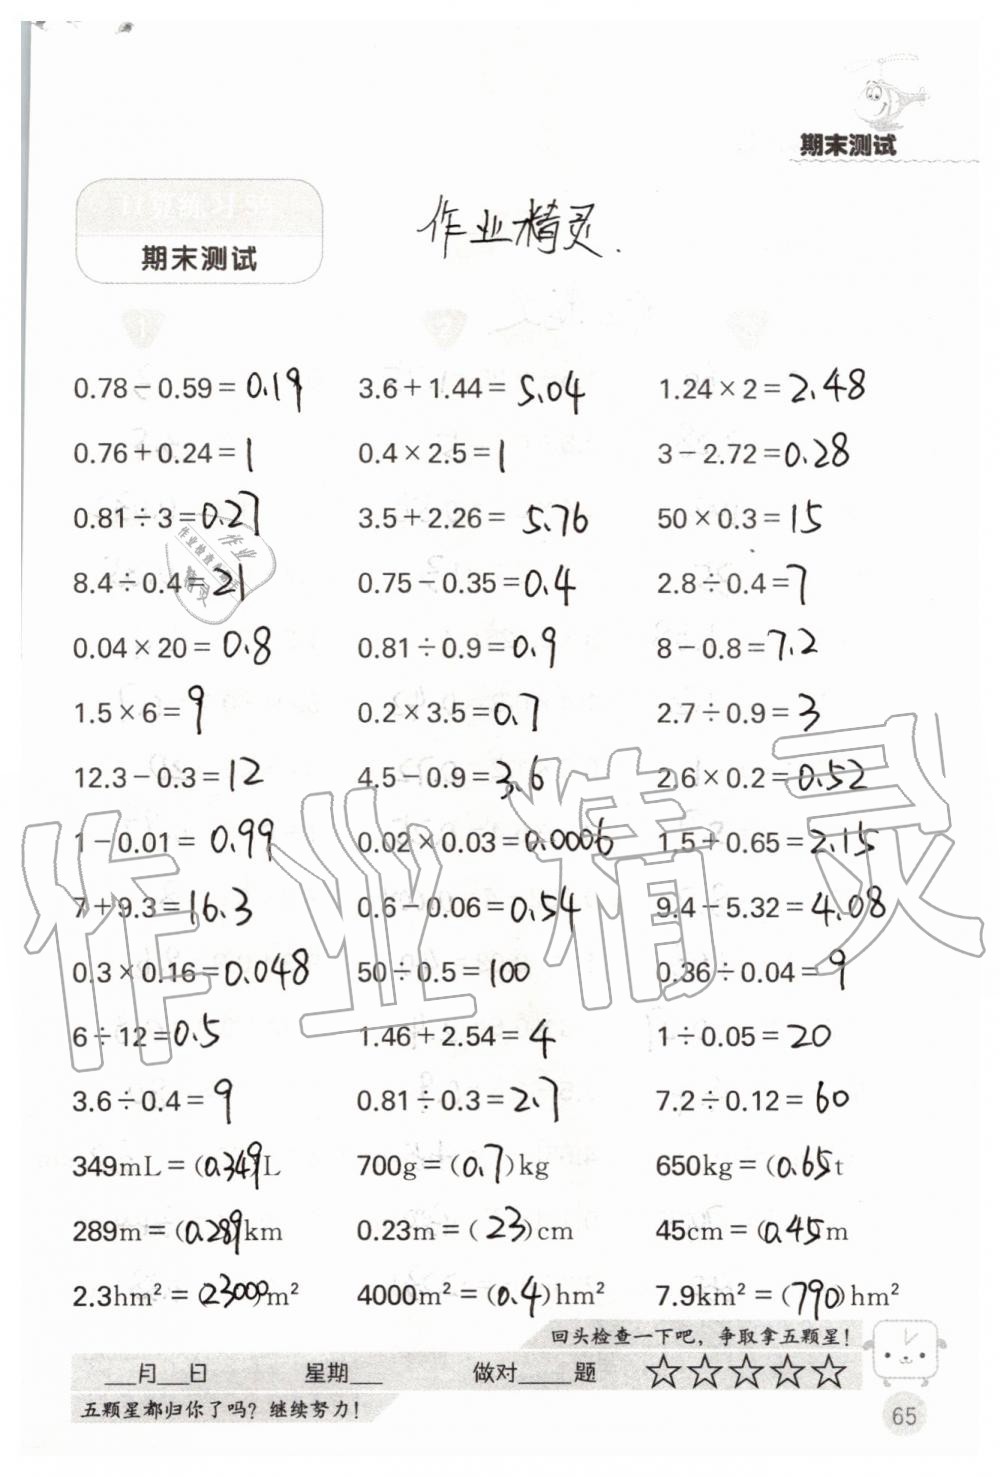 期末测试
口算练习59
期末测试
作业精灵.
1 2
0.78－0.59＝0.19 3.6＋1.44＝5.04 1.24×2＝2.48
0.76＋0.24＝1 0.4×2.5＝1 3－2.72＝0.28
0.81÷3＝0.27 3.5＋2.26＝5.76 50×0.3＝15
8.4÷0.4＝21 0.75－0.35＝0.4 2.8÷0.4＝7
0.04×20＝0.8 0.81÷0.9＝0.9 8－0.8＝7.2
1.5×6＝9 0.2×3.5＝0.7 2.7÷0.9＝3
12.3－0.3＝12 4.5－0.9＝3.6 2.6×0.2＝0.52
1－0.01＝0.99 0.02×0.03＝0.0006 1.5＋0.65＝2.15
7＋9.3＝16.3 0.6－0.06＝0.54 9.4－5.32＝4.08
0.3×0.16＝0.048 50÷0.5＝100 0.36÷0.04＝9
6÷12＝0.5 1.46＋2.54＝4 1÷0.05＝20
3.6÷0.4＝9 0.81÷0.3＝2.7 7.2÷0.12＝60
349mL＝(0.349)L 700g＝(0.7)kg 650kg＝(0.65t
289m＝(0.289km 0.23m＝(23)cm 45cm＝(0.45m
2.3hm²＝(23000)m² 4000m²＝(0.4)hm² 7.9km²＝(790)hm²
作业
作业检查
精灵
作业精灵
回头检查一下吧，争取拿五颗星！
___月___日 星期___ 做对____题 ☆☆☆☆☆
五颗星都归你了吗？继续努力！
65